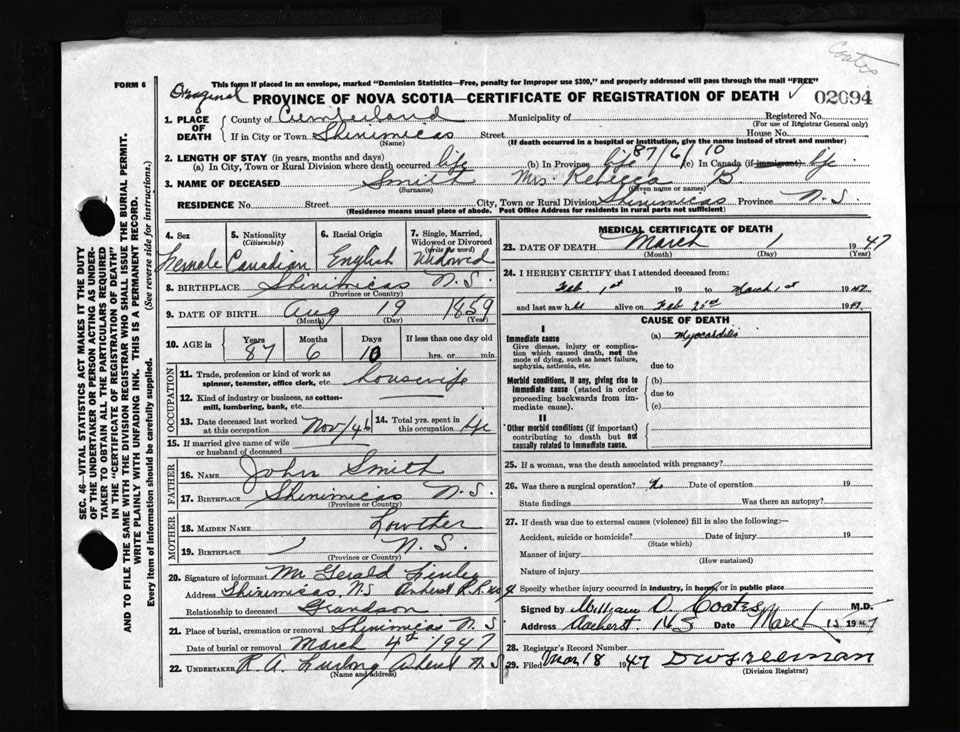 Coates
FORM 6
This form if placed in an envelope, marked "Dominion Statistics—Free, penalty for improper use $300," and properly addressed will pass through the mail "FREE"
Original PROVINCE OF NOVA SCOTIA—CERTIFICATE OF REGISTRATION OF DEATH 02694
1. PLACE OF DEATH County of Cumberland Municipality of Registered No.
(For use of Registrar General only)
If in City or Town Shinimicas Street House No.
(Name) (If death occurred in a hospital or institution, give the name instead of street and number)
2. LENGTH OF STAY (in years, months and days) 87/6/10
(a) In City, Town or Rural Division where death occurred life (b) In Province life (c) In Canada (if immigrant) life
3. NAME OF DECEASED Smith Mrs. Rebecca B
(Surname) (Given name or names)
RESIDENCE No. Street City, Town or Rural Division Shinimicas Province N.S.
(Residence means usual place of abode. Post Office Address for residents in rural parts not sufficient)
4. Sex 5. Nationality (Citizenship) 6. Racial Origin 7. Single, Married, Widowed or Divorced (write the word)
Female Canadian English Widowed
8. BIRTHPLACE Shinimicas N.S.
(Province or Country)
9. DATE OF BIRTH Aug 19 1859
(Month) (Day) (Year)
10. AGE in Years Months Days If less than one day old
87 6 10 hrs. or min.
OCCUPATION
11. Trade, profession or kind of work as spinner, teamster, office clerk, etc. housewife
12. Kind of industry or business, as cotton-mill, lumbering, bank, etc.
13. Date deceased last worked at this occupation Nov/46 14. Total yrs. spent in this occupation life
15. If married give name of wife or husband of deceased
FATHER
16. NAME John Smith
17. BIRTHPLACE Shinimicas N.S.
(Province or Country)
MOTHER
18. MAIDEN NAME Lowther
19. BIRTHPLACE N.S.
(Province or Country)
20. Signature of informant Mr Gerald Finley
Address Shinimicas, N.S Amherst R.R. no 4
Relationship to deceased Grandson
21. Place of burial, cremation or removal Shinimicas N S
Date of burial or removal March 4th 1947
22. UNDERTAKER R. A. Furlong Amherst N S
(Name and address)
MEDICAL CERTIFICATE OF DEATH
23. DATE OF DEATH March 1 1947
(Month) (Day) (Year)
24. I HEREBY CERTIFY that I attended deceased from:
Feb. 1st 19 to March 1st 1947
and last saw h alive on Feb 19
CAUSE OF DEATH
I
Immediate cause (a) Myocarditis
Give disease, injury or complication which caused death, not the mode of dying, such as heart failure, asphyxia, asthenia, etc. due to
Morbid conditions, if any, giving rise to immediate cause (stated in order proceeding backwards from immediate cause). (b)
due to
(c)
II
Other morbid conditions (if important) contributing to death but not causally related to immediate cause.
25. If a woman, was the death associated with pregnancy?
26. Was there a surgical operation? No Date of operation 19
State findings Was there an autopsy?
27. If death was due to external causes (violence) fill in also the following:—
Accident, suicide or homicide? Date of injury 19
(State which)
Manner of injury
(How sustained)
Nature of injury
Specify whether injury occurred in industry, in home, or in public place
Signed by William D. Coates M.D.
Address Amherst NS Date March 13 1947
28. Registrar's Record Number
29. Filed Mar 18 1947 D W Freeman
(Division Registrar)
SEC. 46—VITAL STATISTICS ACT MAKES IT THE DUTY
OF THE UNDERTAKER OR PERSON ACTING AS UNDER-
TAKER TO OBTAIN ALL THE PARTICULARS REQUIRED
IN THE "CERTIFICATE OF REGISTRATION OF DEATH"
AND TO FILE THE SAME WITH THE DIVISION REGISTRAR WHO SHALL ISSUE THE BURIAL PERMIT.
WRITE PLAINLY WITH UNFADING INK. THIS IS A PERMANENT RECORD.
Every item of information should be carefully supplied. (See reverse side for instructions.)